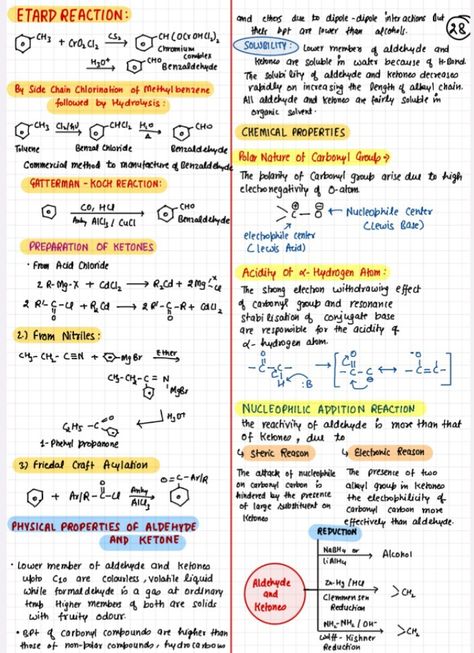 ETARD REACTION:
CH3 + CrO2Cl2 CS2 CH(OCrOHCl2)2
Chromium complex
H3O+ CHO
Benzaldehyde
By Side Chain Chlorination of Methylbenzene
followed by Hydrolysis:
CH3 Cl2/hν CHCl2 H2O Δ CHO
Toluene Benzal Chloride Benzaldehyde
Commercial method to manufacture of Benzaldehyde
GATTERMAN - KOCH REACTION:
CO, HCl CHO
Anhy AlCl3 / CuCl Benzaldehyde
PREPARATION OF KETONES
• From Acid Chloride
2 R-Mg-X + CdCl2 → R2Cd + 2Mg X Cl
2 R'-C-Cl + R2Cd → 2 R'-C-R + CdCl2
O O
2.) From Nitriles:
CH3-CH2-C≡N + MgBr Ether
CH3-CH2-C=N
MgBr
H3O+
C2H5-C O
1-Phenyl propanone
3) Friedal Craft Acylation
O=C-Ar/R
+ Ar/R-C-Cl Anhy AlCl3
O
PHYSICAL PROPERTIES OF ALDEHYDE
AND KETONE
• Lower member of aldehyde and ketones
upto C10 are colourless, volatile liquid
while formaldehyde is a gas at ordinary
temp Higher members of both are solids
with fruity odour.
• BPT of carbonyl compounds are higher than
those of non-polar compounds, hydrocarbons
28
and ethers due to dipole-dipole interactions but
their bpt are lower than alcohols.
SOLUBILITY: Lower member of aldehyde and
ketones are soluble in water because of H-Bond.
The solubility of aldehyde and ketones decreases
rapidly on increasing the length of alkyl chain.
All aldehyde and ketones are fairly soluble in
organic solvent.
CHEMICAL PROPERTIES
Polar Nature of Carbonyl Group →
The polarity of Carbonyl group arise due to high
electronegativity of O-atom.
C - O ← Nucleophile Center
(Lewis Base)
electrophile center
(Lewis Acid)
Acidity of α-Hydrogen Atom:
The strong electron withdrawing effect
of carbonyl group and resonance
stabilisation of conjugate base
are responsible for the acidity of
α-hydrogen atom.
O O O
-C-C- → [-C-C ↔ -C=C-]
H :B
NUCLEOPHILIC ADDITION REACTION
the reactivity of aldehyde is more than that
of ketones, due to
Steric Reason
The attack of nucleophile
on carbonyl carbon is
hindered by the presence
of large substituent on
Ketones
Electronic Reason
The presence of two
alkyl group in ketones
the electrophilicity of
carbonyl carbon more
effectively than aldehyde.
REDUCTION
Aldehyde
and
Ketones
NaBH4 or
LiAlH4
Alcohol
Zn-Hg / HCl
Clemmensen
Reduction
>CH2
NH2-NH2 / OH-
Wolff-Kishner
Reduction
>CH2